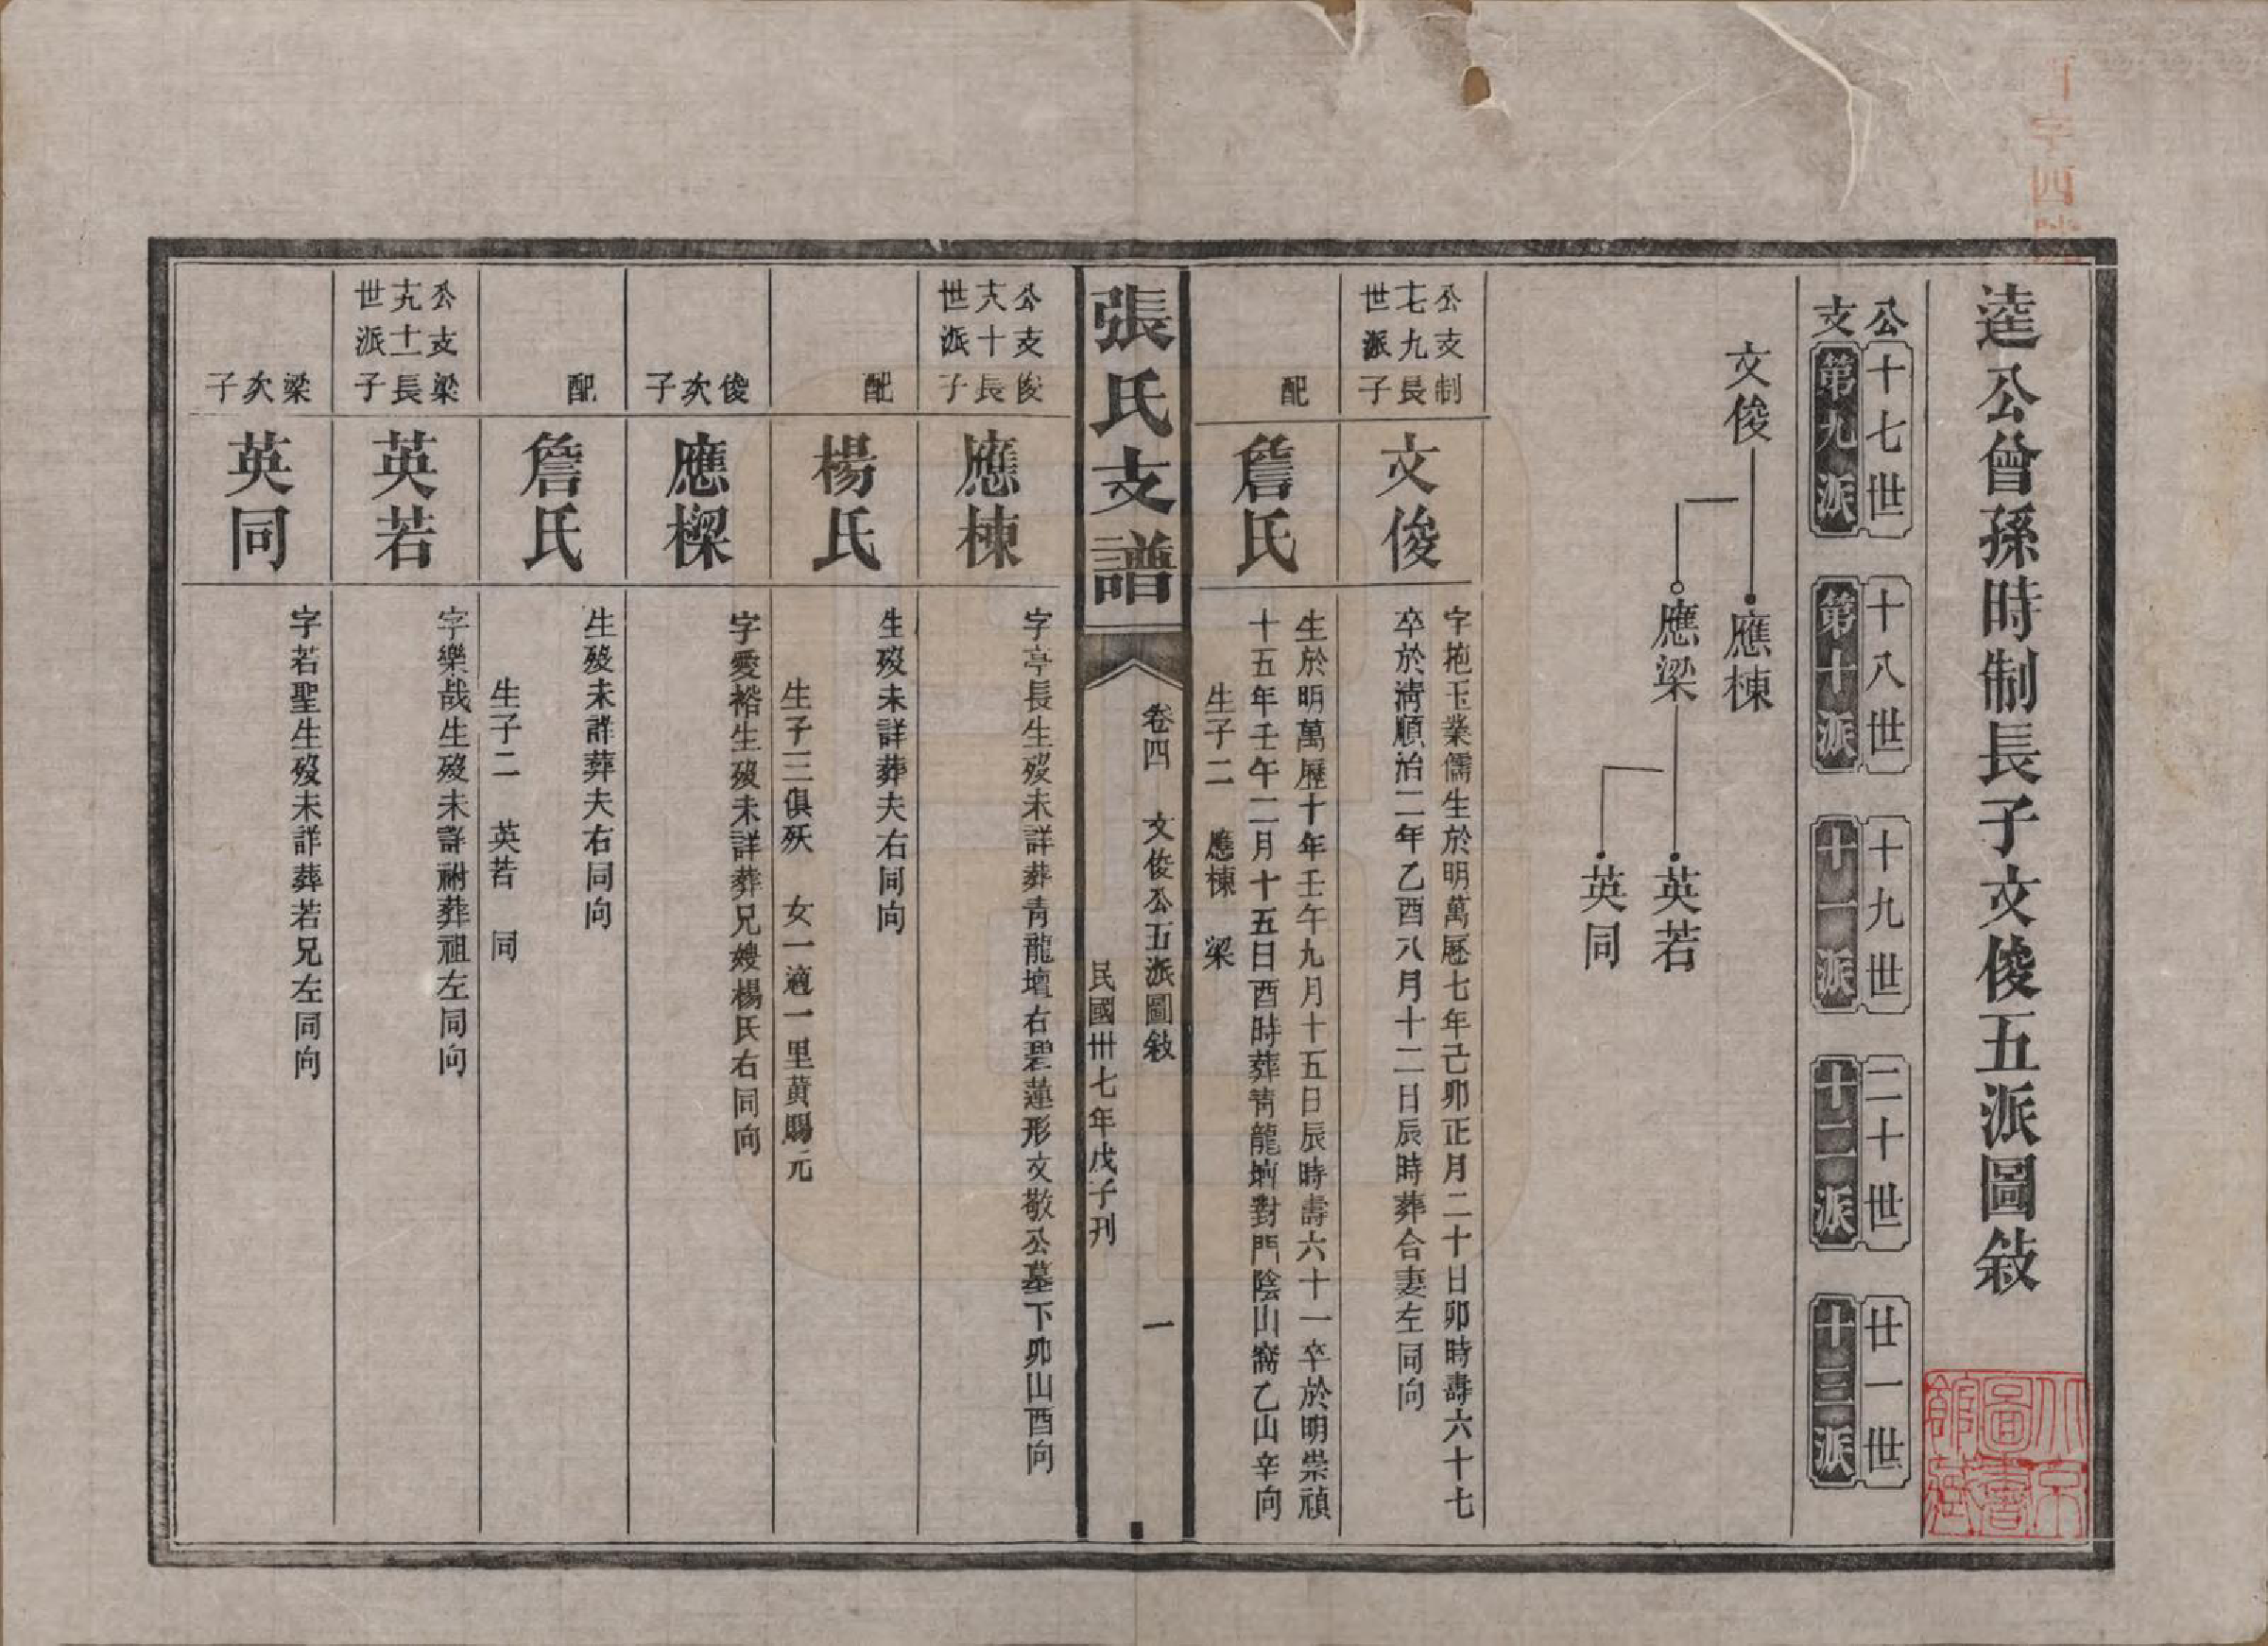 逵公曾孫時制長子文俊五派圖敍
公支
十七世 第九派
十八世 第十派
十九世 十一派
二十世 十二派
廿一世 十三派
文俊
應棟
應梁
英若
英同
公支制
十七九長
世派子
文俊
字抱玉業儒生於明萬厯七年己卯正月二十日卯時壽六十七
卒於清順治二年乙酉八月十二日辰時葬合妻左同向
配
詹氏
生於明萬厯十年壬午九月十五日辰時壽六十一卒於明崇禎
十五年壬午二月十五日酉時葬青龍塆對門陰山窩乙山辛向
生子二 應棟 梁
張氏支譜
卷四 文俊公五派圖敍
一
民國卅七年戊子刊
公支俊
十八十長
世派子
應棟
字亭長生歿未詳葬青龍壇右碧蓮形文敬公墓下卯山酉向
配
楊氏
生歿未詳葬夫右同向
生子三俱殀 女一適一里黃賜元
俊次子
應樑
字愛裕生歿未詳葬兄嫂楊氏右同向
配
詹氏
生歿未詳葬夫右同向
生子二 英若 同
公支梁
十九十一長
世派子
英若
字樂哉生歿未詳祔葬祖左同向
梁次子
英同
字若聖生歿未詳葬若兄左同向
北京圖書館藏